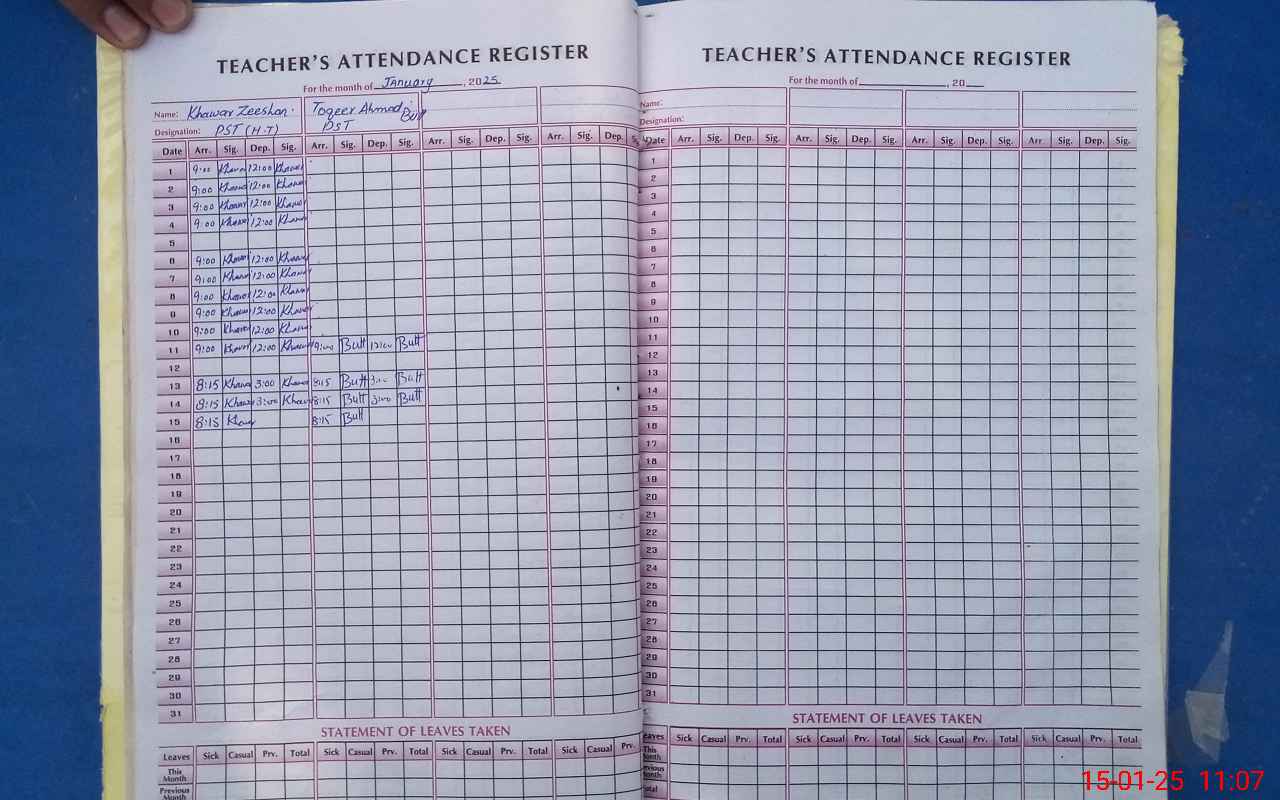 TEACHER'S ATTENDANCE REGISTER
For the month of January, 2025
Name: Khawar Zeeshan. Toqeer Ahmed Butt
Designation: PST (H.T) PST
Date Arr. Sig. Dep. Sig. Arr. Sig. Dep. Sig. Arr. Sig. Dep. Sig. Arr. Sig. Dep.
1 9:00 Khawar 12:00 Khawar
2 9:00 Khawar 12:00 Khawar
3 9:00 Khawar 12:00 Khawar
4 9:00 Khawar 12:00 Khawar
5
6 9:00 Khawar 12:00 Khawar
7 9:00 Khawar 12:00 Khawar
8 9:00 Khawar 12:00 Khawar
9 9:00 Khawar 12:00 Khawar
10 9:00 Khawar 12:00 Khawar
11 9:00 Khawar 12:00 Khawar 9:00 Butt 12:00 Butt
12
13 8:15 Khawar 3:00 Khawar 8:15 Butt 3:00 Butt
14 8:15 Khawar 3:00 Khawar 8:15 Butt 3:00 Butt
15 8:15 Khawar 8:15 Butt
16
17
18
19
20
21
22
23
24
25
26
27
28
29
30
31
STATEMENT OF LEAVES TAKEN
Leaves Sick Casual Prv. Total Sick Casual Prv. Total Sick Casual Prv. Total Sick Casual Prv.
This Month
Previous Month
TEACHER'S ATTENDANCE REGISTER
For the month of , 20
Name:
Designation:
Date Arr. Sig. Dep. Sig. Arr. Sig. Dep. Sig. Arr. Sig. Dep. Sig. Arr Sig. Dep. Sig.
1
2
3
4
5
6
7
8
9
10
11
12
13
14
15
16
17
18
19
20
21
22
23
24
25
26
27
28
29
30
31
STATEMENT OF LEAVES TAKEN
Leaves Sick Casual Prv. Total Sick Casual Prv. Total Sick Casual Prv. Total Sick Casual Prv. Total
This Month
Previous Month
Total
15-01-25 11:07